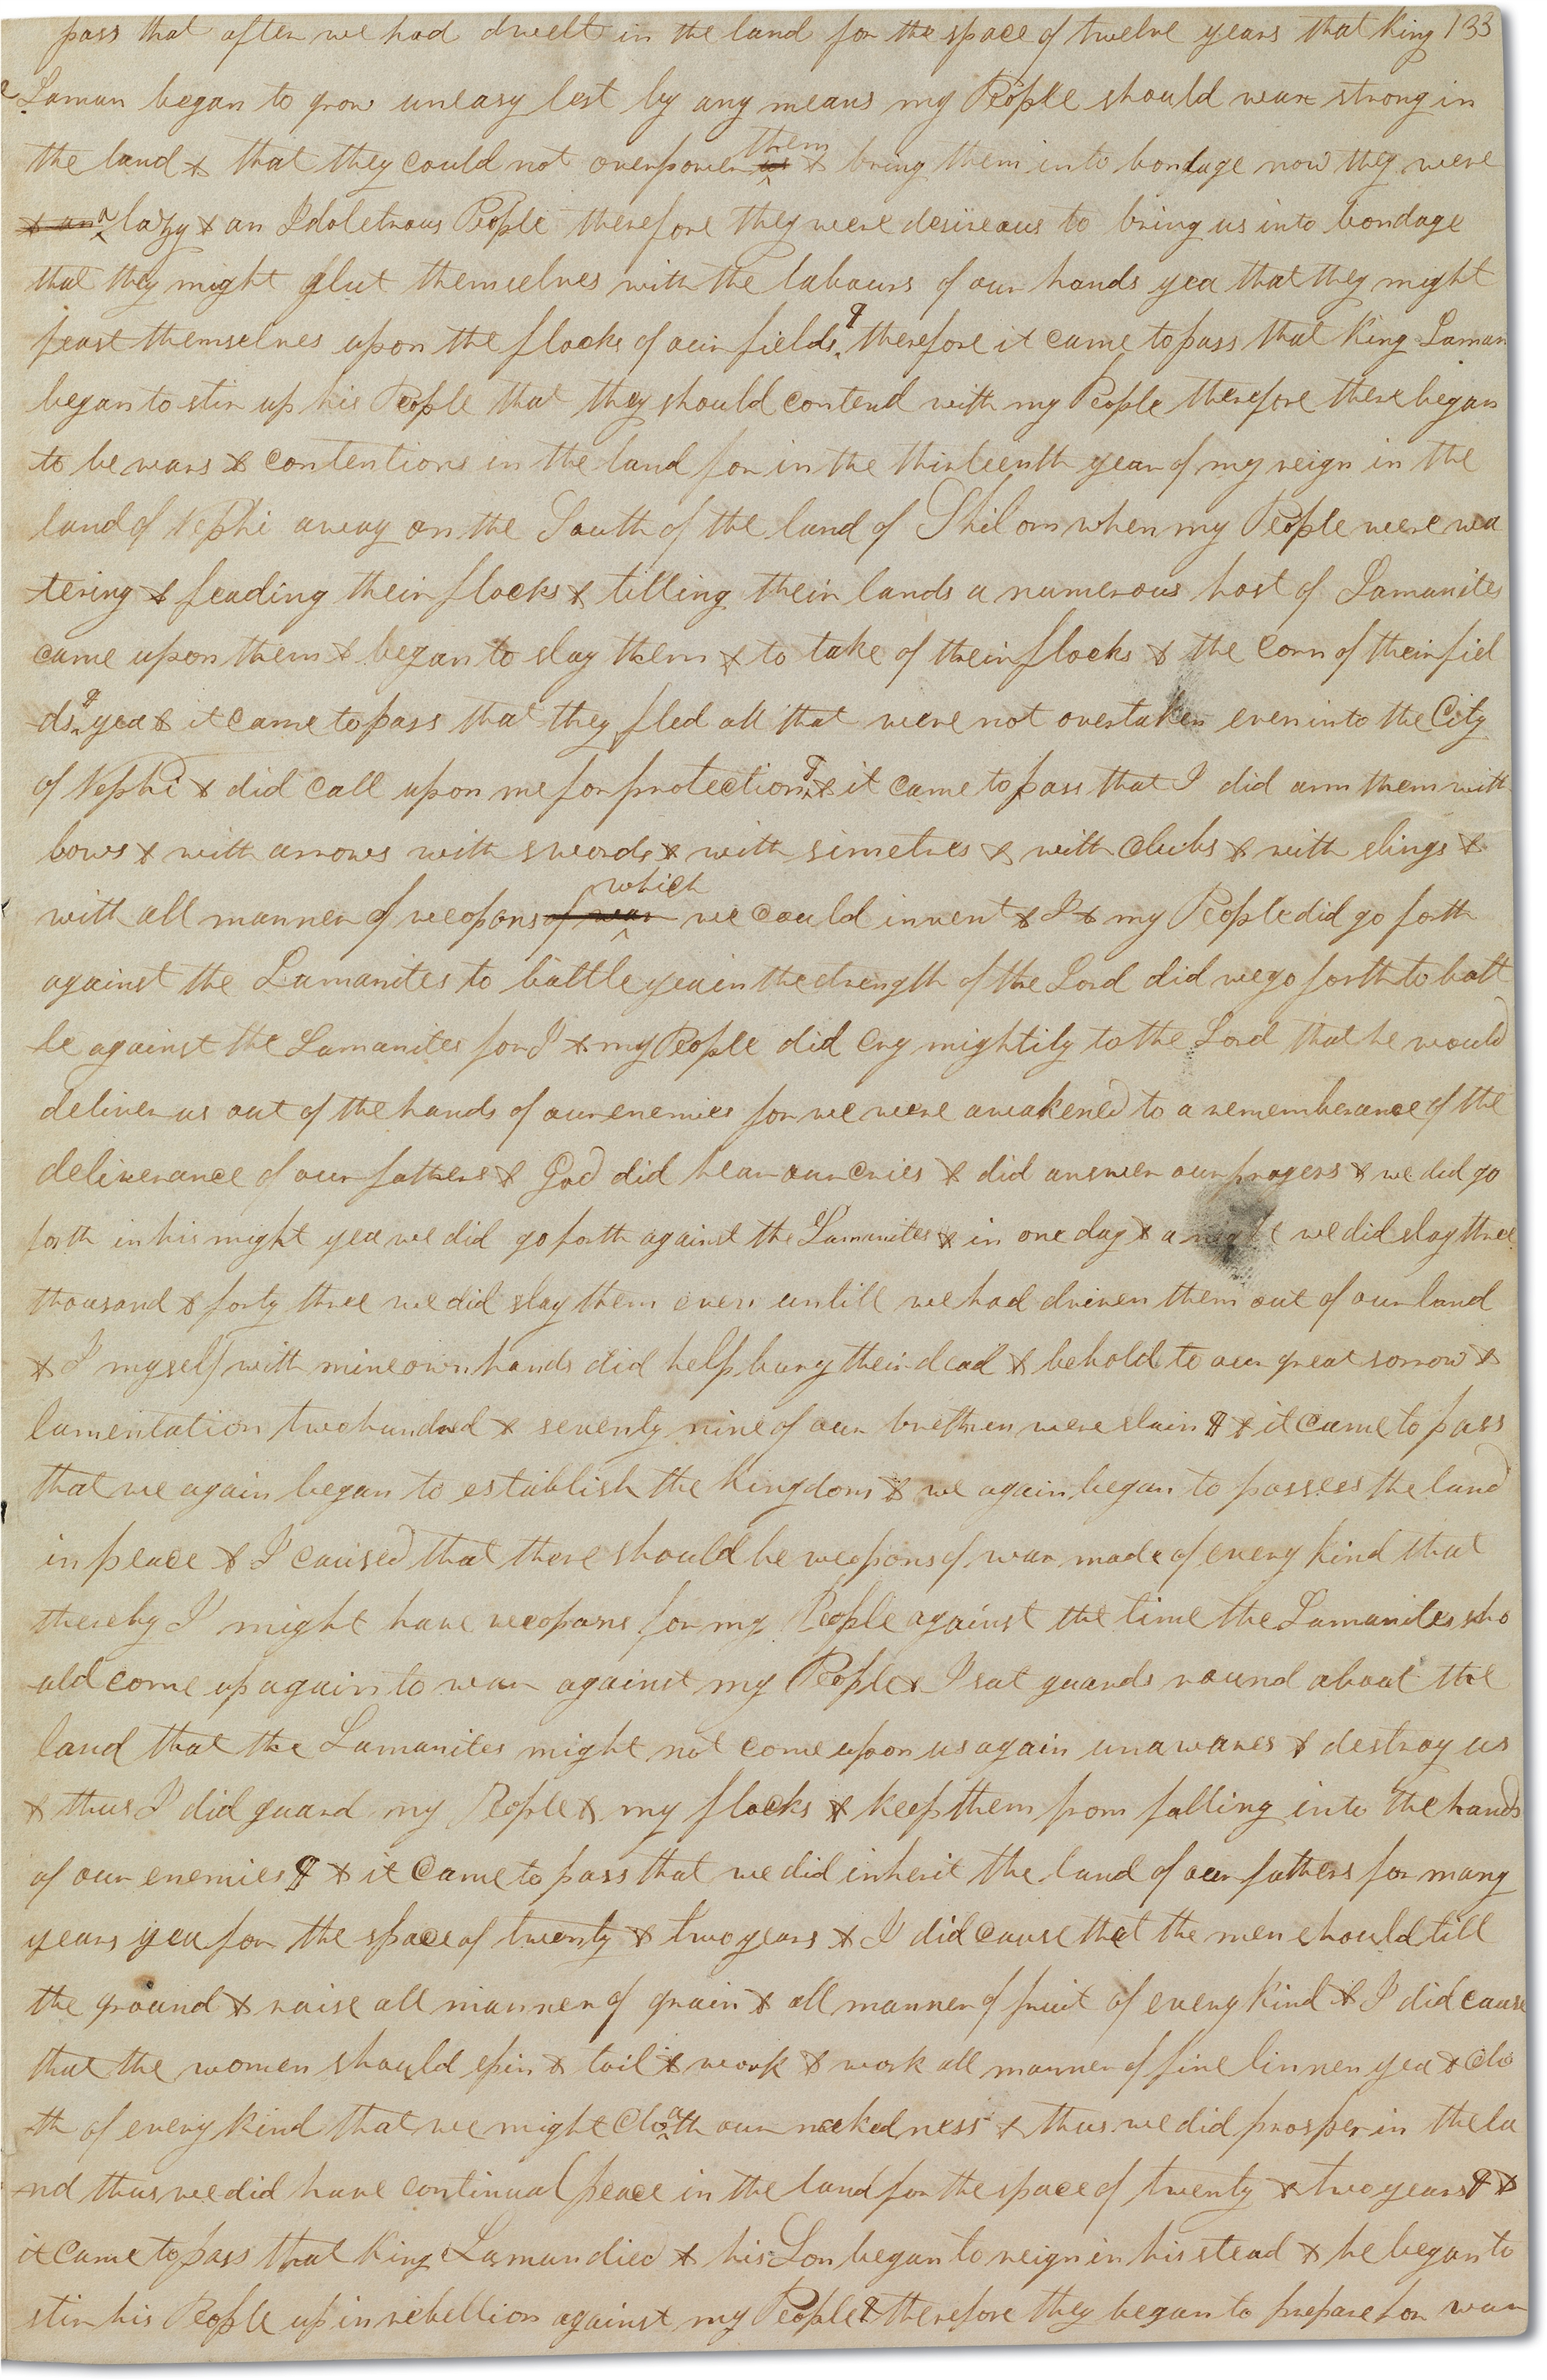 pass that after we had dwelt in the land for the space of twelve years that King 133
Laman began to grow uneasy lest by any means my People should wax strong in
the land & that they could not overpower them & bring them into bondage now they were
& an a lazy & an Idoletrous People therefore they were desireaus to bring us into bondage
that they might glut themselves with the labours of our hands yea that they might
feast themselves upon the flocks of our fields ¶ therefore it came to pass that King Laman
began to stir up his People that they should contend with my People therefore there began
to be wars & contentions in the land for in the thirteenth year of my reign in the
land of Nephi away on the South of the land of Shilom when my People were wa
tering & feading their flocks & tilling their lands a numerous host of Lamanites
came upon them & began to slay them & to take of their flocks & the corn of their fiel
ds ¶ yea & it came to pass that they fled all that were not overtaken even into the City
of Nephi & did call upon me for protection ¶ & it came to pass that I did arm them with
bows & with arrows with swords & with simeters & with clubs & with slings &
with all manner of weopons of war which we could invent & I & my People did go forth
against the Lamanites to battle yea in the strength of the Lord did we go forth to batt
le against the Lamanites for I & my People did cry mightily to the Lord that he would
deliver us out of the hands of our enemies for we were awakened to a rememberance of the
deliverance of our fathers & God did hear our cries & did answer our prayers & we did go
forth in his might yea we did go forth against the Lamanites & in one day & a night we did slay three
thousand & forty three we did slay them even untill we had driven them out of our land
& I myself with mine own hands did help bury their dead & behold to our great sorrow &
lamentation two hundred & seventy nine of our brethren were slain ¶ & it came to pass
that we again began to establish the kingdom & we again began to possess the land
in peace & I caused that there should be weopons of war made of every kind that
thereby I might have weopons for my People against the time the Lamanites sho
uld come up again to war against my People & I sat guards round about the
land that the Lamanites might not come upon us again unawares & destroy us
& thus I did guard my People & my flocks & keep them from falling into the hands
of our enemies ¶ & it came to pass that we did inherit the land of our fathers for many
years yea for the space of twenty & two years & I did cause that the men should till
the ground & raise all manner of grain & all manner of fruit of every kind & I did cause
that the women should spin & toil & work & work all manner of fine linnen yea & clo
th of every kind that we might cloath our nakedness & thus we did prosper in the la
nd thus we did have continual peace in the land for the space of twenty & two years ¶ &
it came to pass that King Laman died & his Son began to reign in his stead & he began to
stir his People up in rebellion against my People & therefore they began to prepare for war